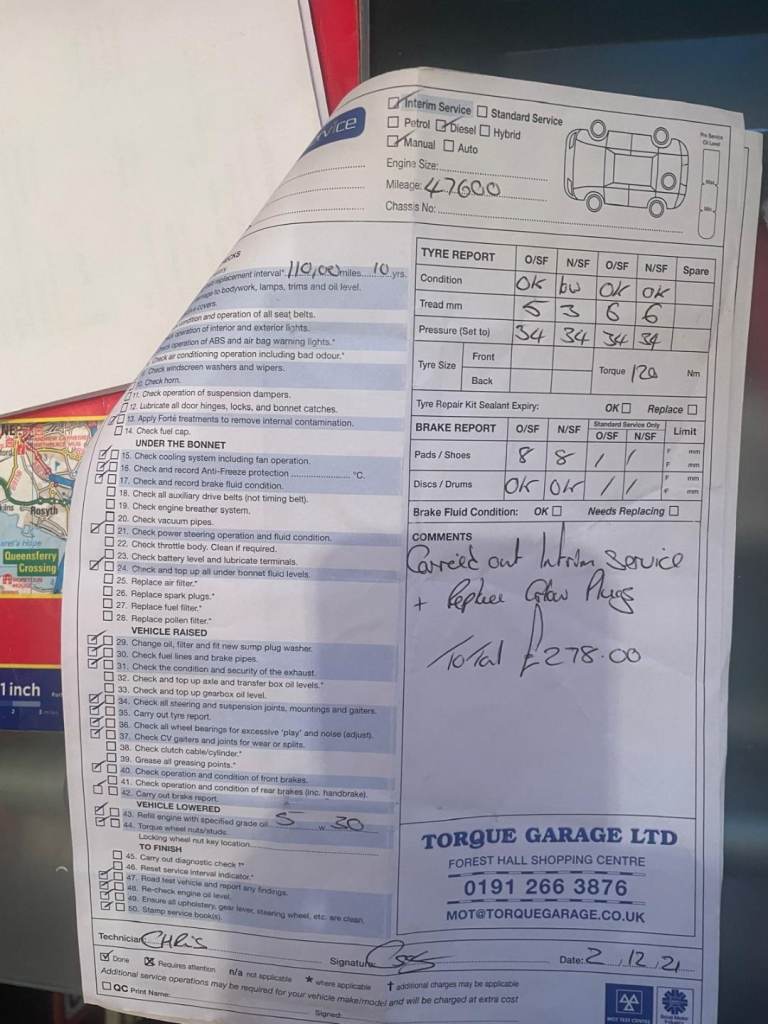 vice
Interim Service Standard Service
Petrol Diesel Hybrid
Manual Auto
Engine Size:
Mileage: 47600
Chassis No:
replacement interval* 110,000 miles 10 yrs.
to bodywork, lamps, trims and oil level.
covers.
condition and operation of all seat belts.
operation of interior and exterior lights.
operation of ABS and air bag warning lights.*
Check air conditioning operation including bad odour.*
Check windscreen washers and wipers.
10. Check horn.
11. Check operation of suspension dampers.
12. Lubricate all door hinges, locks, and bonnet catches.
13. Apply Forté treatments to remove internal contamination.
14. Check fuel cap.
UNDER THE BONNET
15. Check cooling system including fan operation.
16. Check and record Anti-Freeze protection °C.
17. Check and record brake fluid condition.
18. Check all auxiliary drive belts (not timing belt).
19. Check engine breather system.
20. Check vacuum pipes.
21. Check power steering operation and fluid condition.
22. Check throttle body. Clean if required.
23. Check battery level and lubricate terminals.
24. Check and top up all under bonnet fluid levels.
25. Replace air filter.*
26. Replace spark plugs.*
27. Replace fuel filter.*
28. Replace pollen filter.*
VEHICLE RAISED
29. Change oil, filter and fit new sump plug washer.
30. Check fuel lines and brake pipes.
31. Check the condition and security of the exhaust.
32. Check and top up axle and transfer box oil levels.*
33. Check and top up gearbox oil level.
34. Check all steering and suspension joints, mountings and gaiters.
35. Carry out tyre report.
36. Check all wheel bearings for excessive 'play' and noise (adjust).
37. Check CV gaiters and joints for wear or splits.
38. Check clutch cable/cylinder.*
39. Grease all greasing points.*
40. Check operation and condition of front brakes.
41. Check operation and condition of rear brakes (inc. handbrake).
42. Carry out brake report.
VEHICLE LOWERED
43. Refill engine with specified grade oil. 5 w 30
44. Torque wheel nuts/studs.
Locking wheel nut key location
TO FINISH
45. Carry out diagnostic check †*
46. Reset service interval indicator.*
47. Road test vehicle and report any findings.
48. Re-check engine oil level.
49. Ensure all upholstery, gear lever, steering wheel, etc. are clean.
50. Stamp service book(s).
TYRE REPORT O/SF N/SF O/SF N/SF Spare
Condition OK bw OK OK
Tread mm 5 3 6 6
Pressure (Set to) 34 34 34 34
Tyre Size Front Back Torque 120 Nm
Tyre Repair Kit Sealant Expiry: OK Replace
BRAKE REPORT O/SF N/SF Standard Service Only O/SF N/SF Limit
Pads / Shoes 8 8 / / F mm F mm
Discs / Drums OK OK / / F mm F mm
Brake Fluid Condition: OK Needs Replacing
COMMENTS
Carried out Interim Service
+ Replace Glow Plugs
Total £278.00
TORQUE GARAGE LTD
FOREST HALL SHOPPING CENTRE
0191 266 3876
MOT@TORQUEGARAGE.CO.UK
Technician CHRIS Signature Date: 2.12.21
Done Requires attention n/a not applicable * where applicable † additional charges may be applicable
Additional service operations may be required for your vehicle make/model and will be charged at extra cost
QC Print Name: Signed:
MOT TEST CENTRE
Rosyth
Queensferry
Crossing
1 inch